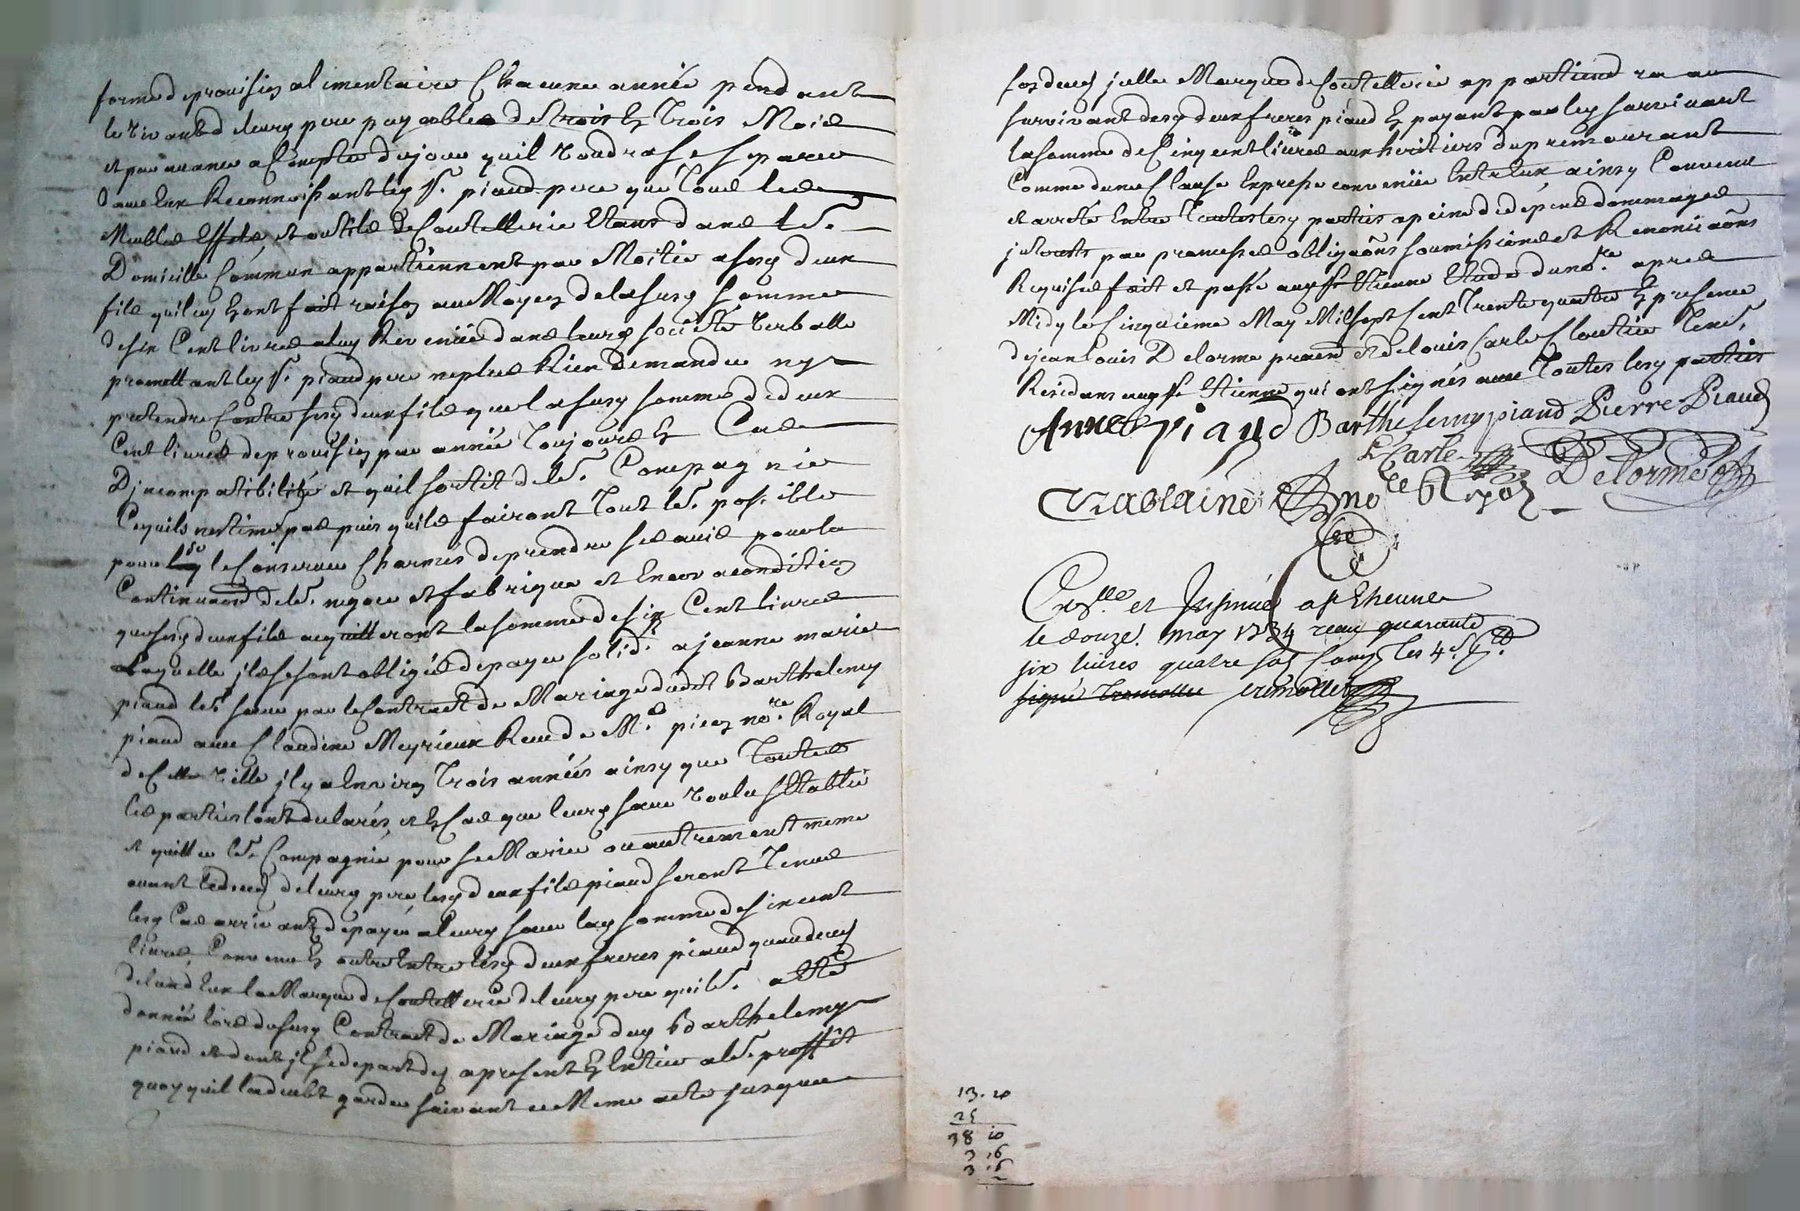 forme de provision alimentaire Chacune année pendant
le vivant de leurd pere payable de trois En Trois Mois
et par avance a Compter du jour quil voudra se separer
d'avec Eux Reconnoissant led Sr. piaud pere que tous les
Meubles Effets et outils de Coutellerie Etans dans led.
Domicille Commun appartiennent par Moitié a sesd deux
fils quil en Ont fait raison au Moyen de la susd somme
de six Cent livres a luy Revenüe dans leurd societé verballe
promettant led Sr. piaud pere ne plus Rien Demander ny
pretendre Contre sesd deux fils que la susd somme de deux
Cent livres de provision par année Toujours En Cas
D'incompatibilité et quil sortit de lad. Compagnie
Ce quils n'estiment pas puis quils fairont Tout led. possible
pour le Conserver Charmés de prendre ses avis pour la
Continuaon de led. negoce et fabrique et Encor a condition
que sesd deux fils acquitteront la somme de six Cent livres
a laquelle ils se sont obligés de payer solid.t a jeanne marie
piaud led. sœur par le Contract de Mariage dudit Barthelemy
piaud avec Claudine Meyrieux Reçu de Me. picon nore. Royal
de Cette Ville il y a Environ Trois années ainsy que Toutes
les parties l'ont declarés, et En Cas que leurd sœur voulu s'Etablir
et quitter led. Compagnie pour se Marier ou autrement meme
avant le deced de leurd pere lesd deux fils piaud seront Tenus
led Cas arrivant de payer a leurd sœur lad somme de six cent
livres, Convenu En outre Entre lesd deux freres piaud quau deced
de l'un d'Eux la Marque de Coutellerie de leurd pere qui led. a Eté
donnée lors du susd Contract de Mariage dud Barthelemy
piaud et dont il se depart des a present En Entier a led. proffit
quoy quil l'a deubt garder suivant ce Meme acte jusqua
son deced jcelle Marque de Coutellerie appartiendra au
survivant desd deux freres piaud En payant par led survivant
la somme de Cinq cent livres aux heritiers du premourant
Comme d'une Clause Expresse convenüe Entre Eux ainsy Convenu
et arreté Entre Toutes lesd parties a peine de depens dommages
jnterets par promesses obligaons soumissions et Renonciaons
Requises fait et passé aud St Etienne Etude du nore. apres
Midy le Cinquieme May Mil sept Cent Trente quatre En presence
de jean louis Delorme pratn et de louis Carle Cloutier Tems.
Residans aud St Etienne qui ont signés avec Toutes lesd parties
Anne piaud Barthelemy piaud Pierre Piaud
L Carle Delorme
nore Royal
Cre
Con.lle et Insinué a St Etienne
le douze. may 1734 reçu quarante
six livres quatre sols Compris les 4 s.
signé Tremollet tremollet
13. 10
25
38 10
3 16
3 16